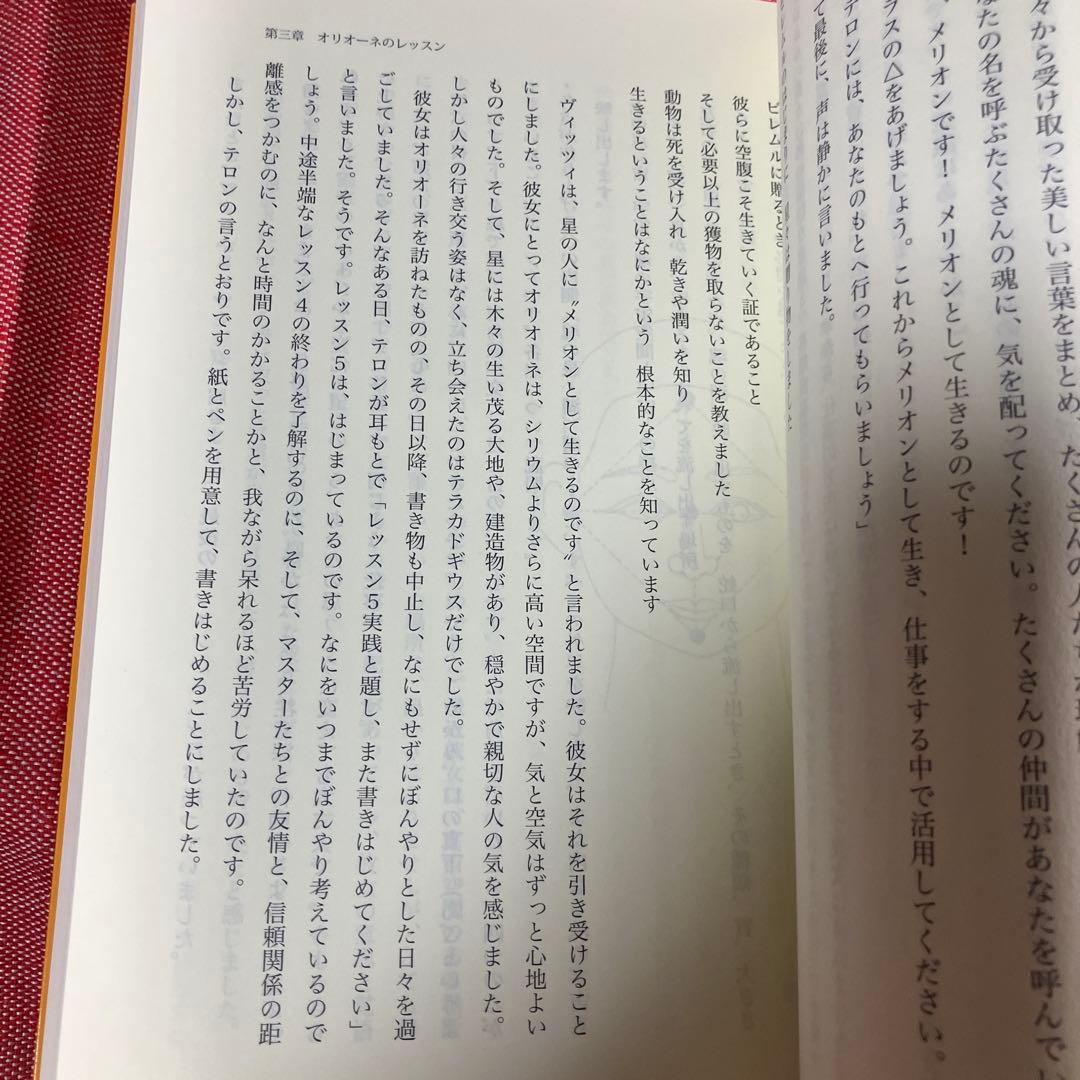 々から受け取った美しい言葉をまとめ、たくさんの人たち
なたの名を呼ぶたくさんの魂に、気を配ってください。たくさんの仲間があなたを呼んでい
、メリオンです！　メリオンとして生きるのです！
ラスの△をあげましょう。これからメリオンとして生き、仕事をする中で活用してください。
テロンには、あなたのもとへ行ってもらいましょう」
て最後に、声は静かに言いました。
第三章　オリオーネのレッスン
ピレムルに贈るとき
彼らに空腹こそ生きていく証であること
そして必要以上の獲物を取らないことを教えました
動物は死を受け入れ　乾きや潤いを知り
生きるということはなにかという　根本的なことを知っています
ヴィッツィは、星の人に〝メリオンとして生きるのです〟と言われました。彼女はそれを引き受けること
にしました。彼女にとってオリオーネは、シリウムよりさらに高い空間ですが、気と空気はずっと心地よい
ものでした。そして、星には木々の生い茂る大地や、建造物があり、穏やかで親切な人の気を感じました。
しかし人々の行き交う姿はなく、立ち会えたのはテラカドギウスだけでした。
彼女はオリオーネを訪ねたものの、その日以降、書き物も中止し、なにもせずにぼんやりとした日々を過
ごしていました。そんなある日、テロンが耳もとで「レッスン５実践と題し、また書きはじめてください」
と言いました。そうです。レッスン５は、はじまっているのです。なにをいつまでぼんやり考えているので
しょう。中途半端なレッスン４の終わりを了解するのに、そして、マスターたちとの友情と、信頼関係の距
離感をつかむのに、なんと時間のかかることかと、我ながら呆れるほど苦労していたのです。
しかし、テロンの言うとおりです。紙とペンを用意して、書きはじめることにしました。